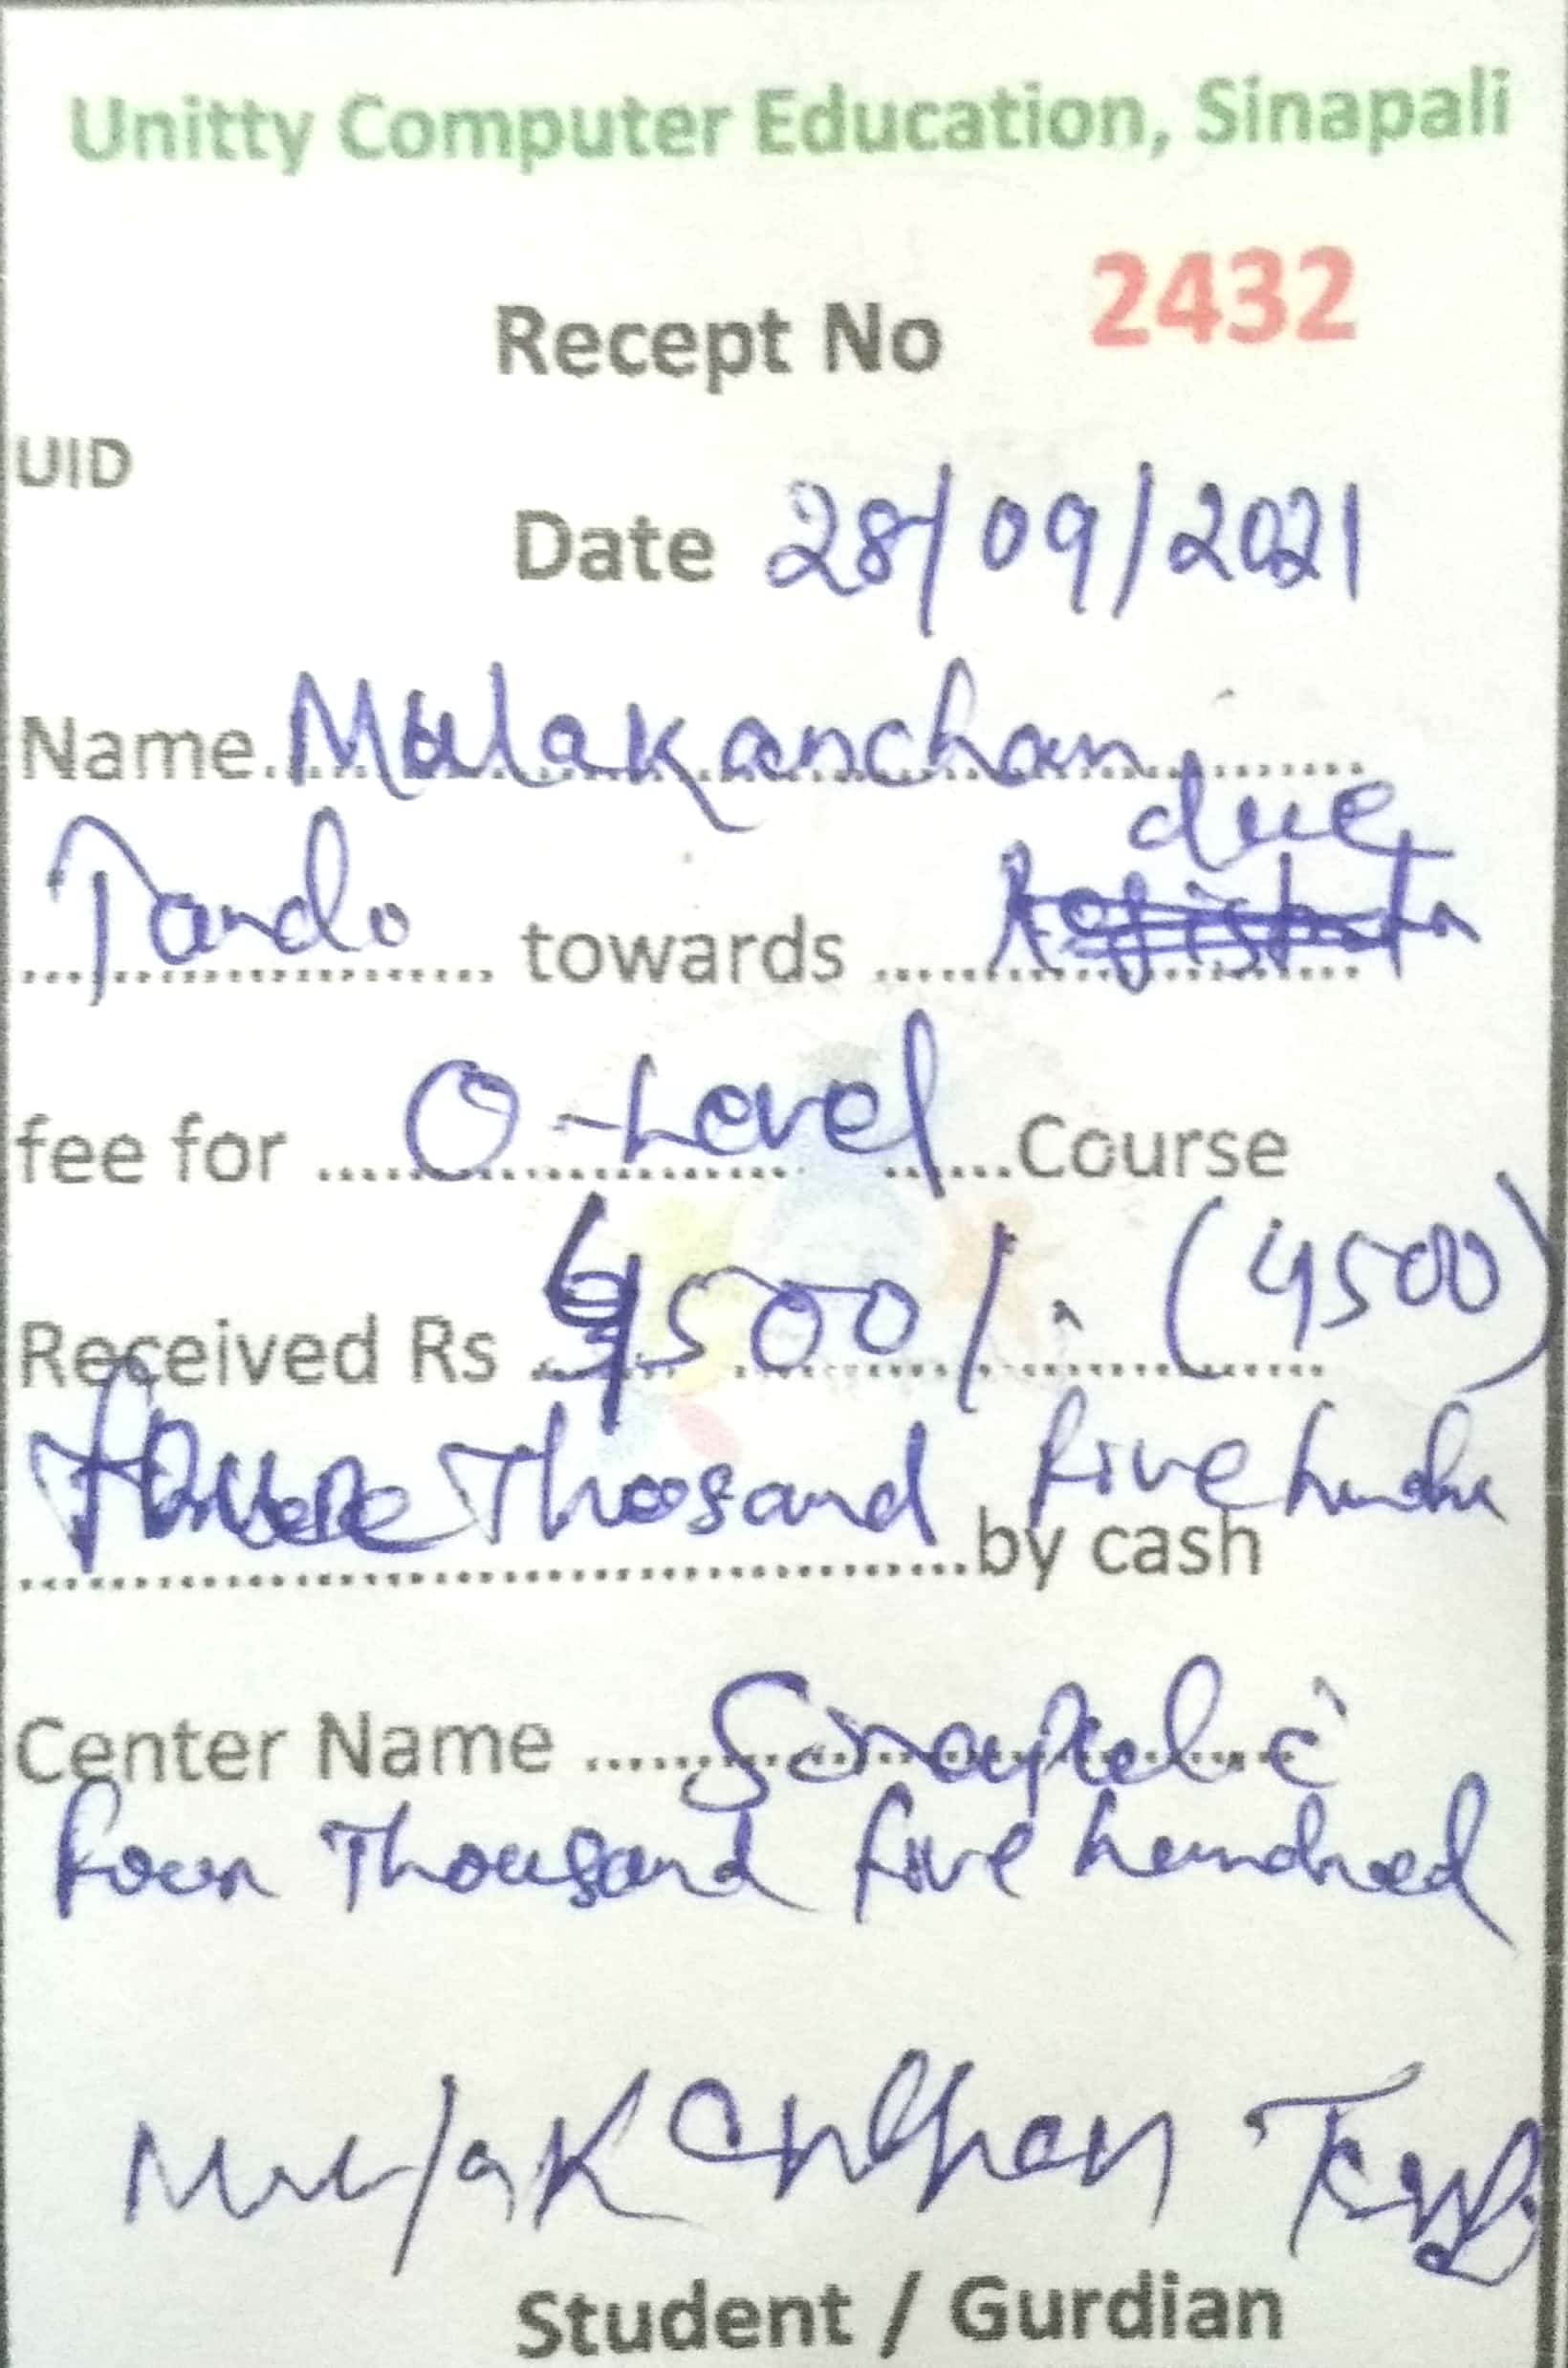 Unitty Computer Education, Sinapali
Recept No 2432
UID
Date 28/09/2021
Name Mulakanchan
due
Tando towards
fee for O-Level Course
Received Rs 4500/- (4500)
Thoosand five hundre
by cash
Center Name Sinapali
four Thousand five hundred
Mulakanchan
Student / Gurdian